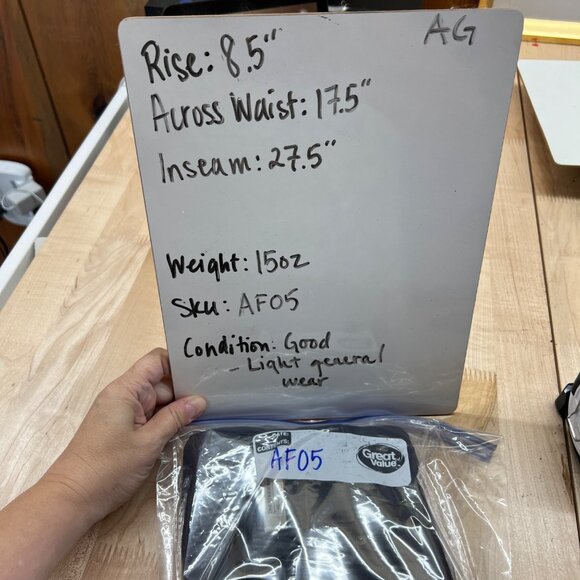 AG
Rise: 8.5"
Across Waist: 17.5"
Inseam: 27.5"
Weight: 15oz
Sku: AF05
Condition: Good
- Light general
wear
CONTENTS:
AF05
Great
Value